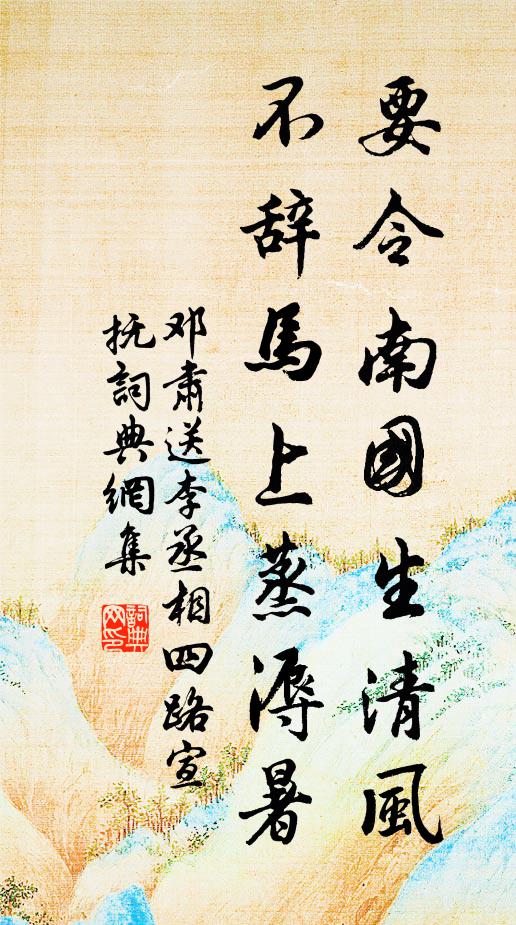 要令南國生清風
不辞馬上蒸溽暑
邓肅送李丞相四路宣
抚詞典網集
詞典